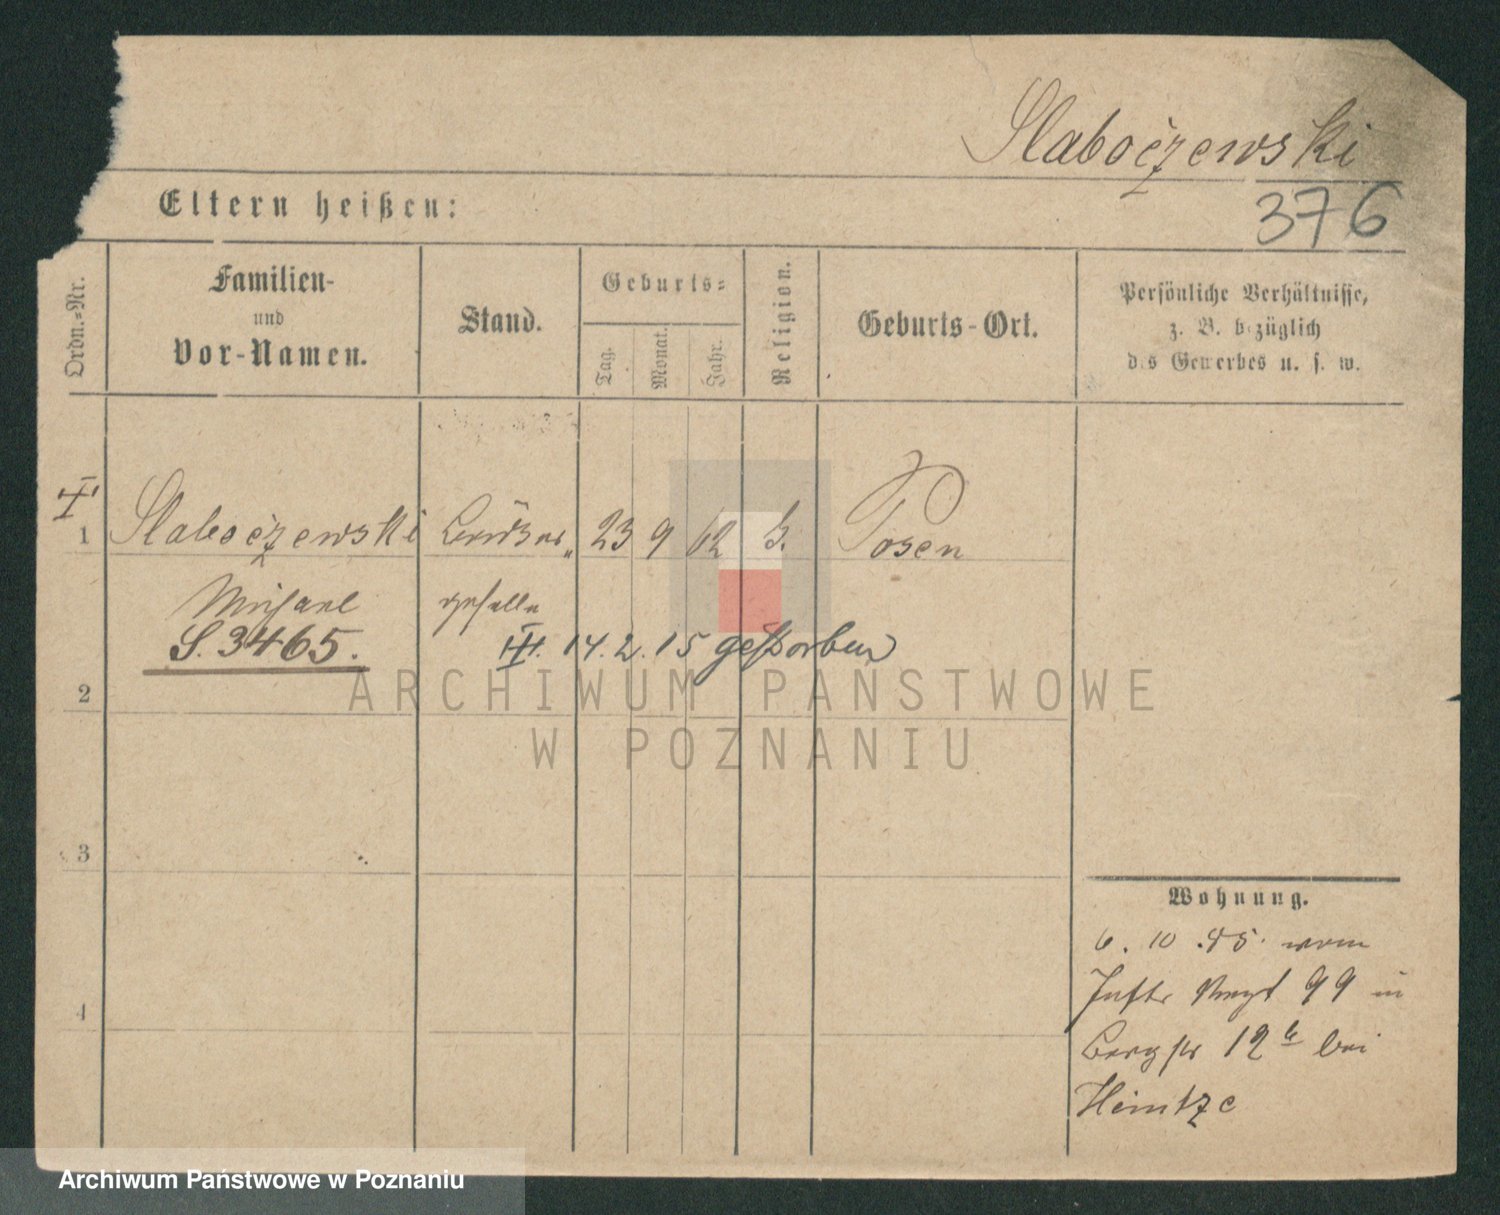 Slaboczewski
376
Eltern heißen:
Ordn.-Nr.
Familien-
und
Vor-Namen.
Stand.
Geburts-
Tag.
Monat.
Jahr.
Religion.
Geburts-Ort.
Persönliche Verhältnisse,
z. B. bezüglich
des Gewerbes u. s. w.
1 Slaboczewski 23 9 62 k. Posen
Michael
geselle
S. 3465.
14. 2. 15 gestorben
2
3
4
Wohnung.
6. 10. 85. vom
Inftr Regt 99 in
Bergstr 12 b bei
Heintze
ARCHIWUM PAŃSTWOWE
W POZNANIU
Archiwum Państwowe w Poznaniu